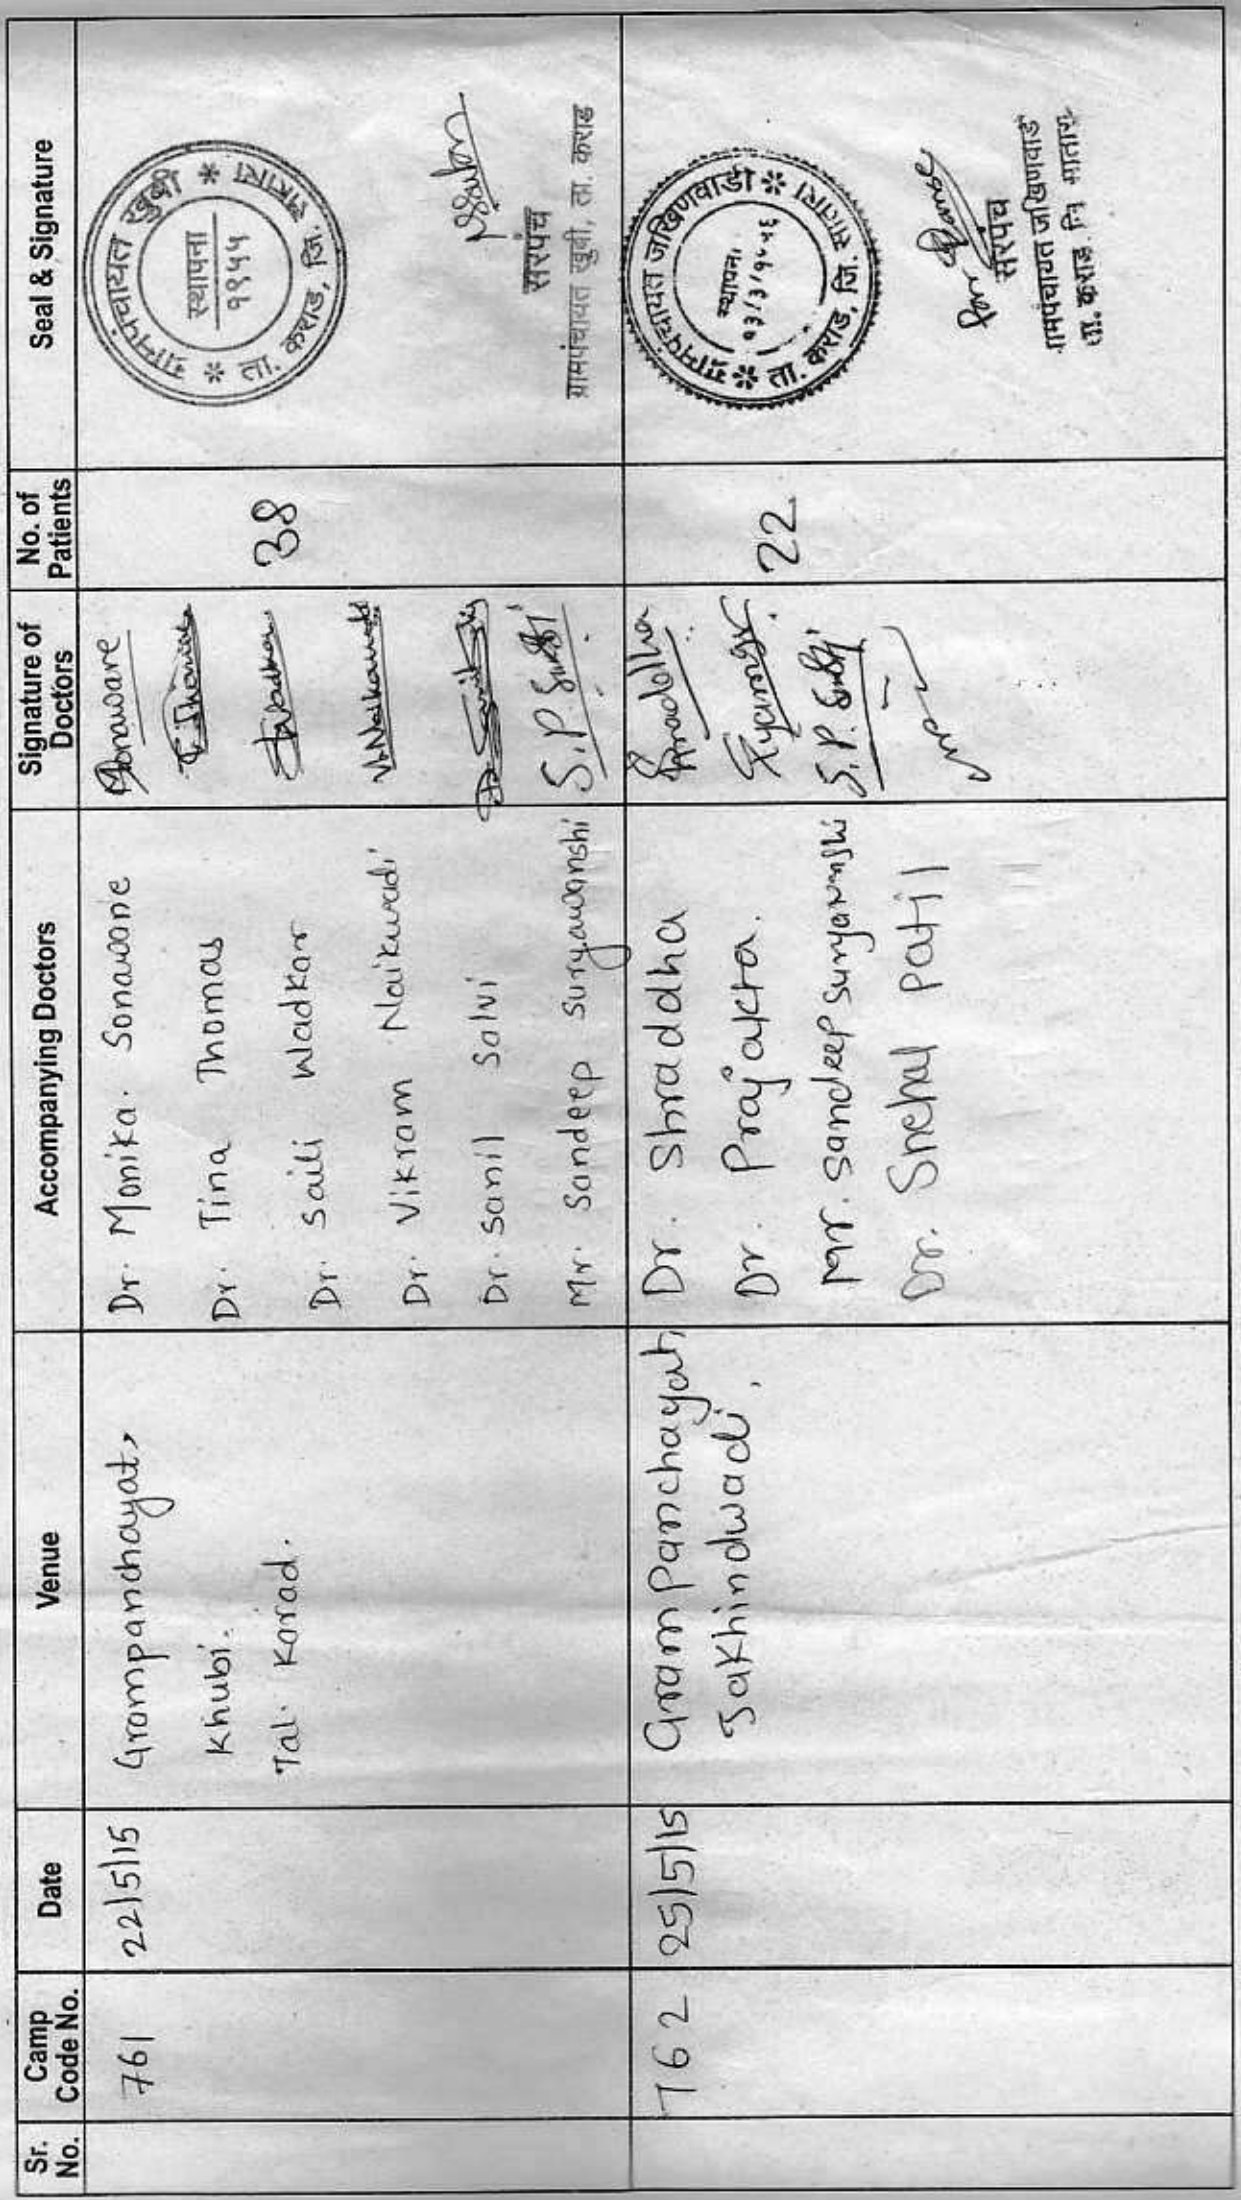 Sr. No.
Camp Code No.
Date
Venue
Accompanying Doctors
Signature of Doctors
No. of Patients
Seal & Signature
761
22/5/15
Grampanchayat,
Khubi.
Tal. Karad.
Dr. Monika. Sonawane
Dr. Tina Thomas
Dr. Saili Wadkar
Dr. Vikram Naikwadi
Dr. Sanil Salvi
Mr. Sandeep Suryawanshi
Sonawane
T. Thomas
V. Naikawadi
38
ग्रामपंचायत खुबी * ता. कराड, जि. सातारा *
स्थापना
१९५५
सरपंच
ग्रामपंचायत खुबी, ता. कराड
762
25/5/15
Gram Panchayat,
Jakhindwadi,
Dr. Shraddha
Dr. Prajakta.
Mr. Sandeep Suryavanshi
Dr. Snehal patil
Shraddha
22
ग्रामपंचायत जखिणवाडी * ता. कराड, जि. सातारा *
स्थापना
सरपंच
ग्रामपंचायत जखिणवाडी
ता. कराड जि सातारा